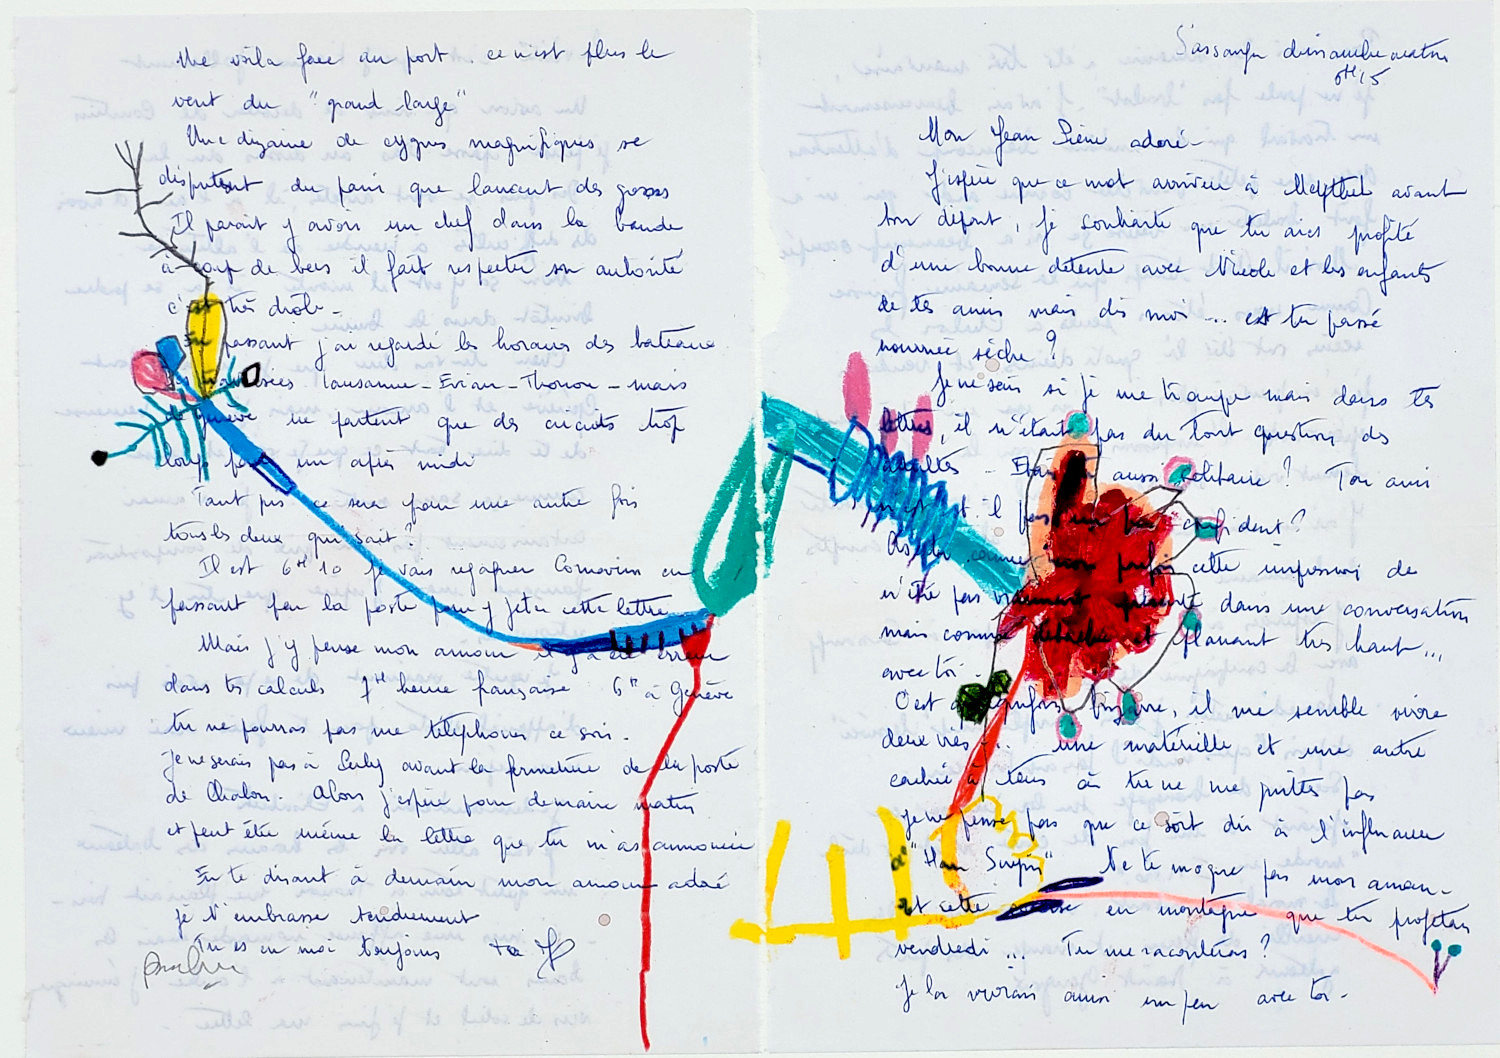 Me voilà face au port. ce n'est plus le
vent du "grand large"
Une dizaine de cygnes magnifiques se
disputent du pain que lancent des gosses
Il parait y avoir un chef dans la bande
à coup de becs il fait respecter son autorité
c'est très drole -
En passant j'ai regardé les horaires des bateaux
Lausanne - Evian - Thonon - mais
de Genève ne partent que des circuits trop
longs pour un après midi
Tant pis ce sera pour une autre fois
tous les deux qui sait?
Il est 6H 10 je vais regagner Cornavin en
passant par la poste pour y jeter cette lettre
Mais j'y pense mon amour il y a eu erreur
dans tes calculs 7H heure française 6H à Genève
tu ne pourras pas me téléphoner ce soir.
Je ne serais pas à avant la fermeture de la poste
de Chalon. Alors j'espère pour demain matin
et peut être même la lettre que tu m'as annoncée
En te disant à demain mon amour adoré
je t'embrasse tendrement
Tu es en moi toujours ta
dimanche matin
9H15
Mon Jean Pierre adoré -
J'espère que ce mot arrivera à avant
ton départ, je souhaite que tu aies profité
d'une bonne détente avec Nicole et les enfants
de tes amis mais dis moi ... es tu passé
sèche ?
Je ne sais si je me trompe mais dans tes
lettres, il n'était pas du tout question des
- aussi solitaire ? Ton ami
n'est il pas un peu confident ?
As tu comme moi parfois cette impression de
n'être pas vraiment présente dans une conversation
mais comme détachée et planant très haut ...
avec toi.
C'est quelquefois bizarre, il me semble vivre
deux vies ... une matérielle et une autre
cachée à tous où tu ne me quittes pas
je ne pense pas que ce soit du à l'influence
Ne te moque pas mon amour -
et cette course en montagne que tu projetais
vendredi ... Tu me raconteras ?
Je la vivrais aussi un peu avec toi -